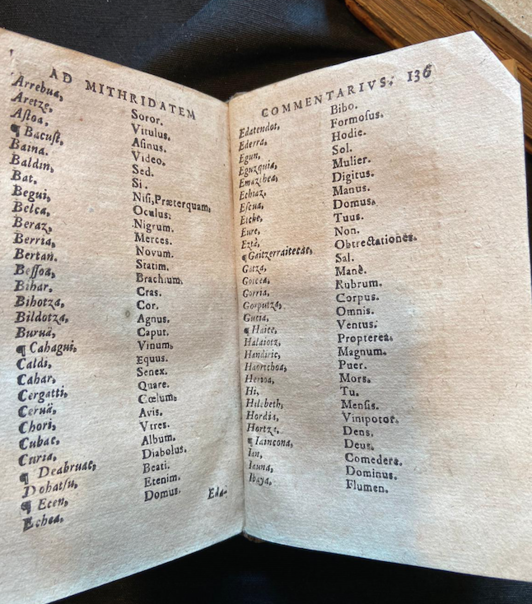 AD MITHRIDATEM
Arrebua, Soror.
Aretze, Vitulus.
Astoa, Asinus.
¶ Bacust, Video.
Baina. Sed.
Baldin, Si.
Bat, Nisi, Præterquam,
Begui, Oculus.
Belca, Nigrum.
Beraz, Merces.
Berria, Novum.
Bertan. Statim.
Bessoa, Brachium.
Bihar, Cras.
Bihotza, Cor.
Bildotza, Agnus.
Buruä, Caput.
¶ Cahagui, Vinum,
Caldi, Equus.
Cahar, Senex.
Cergatti, Quare.
Ceruä, Cœlum,
Chori, Avis.
Cubac, Vtres.
Curia, Album.
¶ Deabruac, Diabolus.
Dohatsu, Beati.
¶ Ecen, Etenim.
Echea, Domus.
Eda-
COMMENTARIVS. 136
Edatendot, Bibo.
Ederra, Formosus.
Egun, Hodie.
Eguzquia, Sol.
Emaztbea, Mulier.
Erbiaz, Digitus.
Escua, Manus.
Etche, Domus.
Eure, Tuus.
Eztè, Non.
¶ Gaitzerraitecac, Obtrectationes.
Gatza, Sal.
Goicea, Manè.
Gorria, Rubrum.
Gorputza, Corpus.
Gucia, Omnis.
¶ Haice, Ventus.
Halaiotz, Propterea.
Handiric, Magnum.
Haurtchoa, Puer.
Herioa, Mors.
Hi, Tu.
Hilebeth, Mensis.
Hordit, Vinipotor.
Hortzc, Dens.
¶ Iaincoa, Deus.
Ian, Comedere.
Iauna, Dominus.
Ibaya, Flumen.